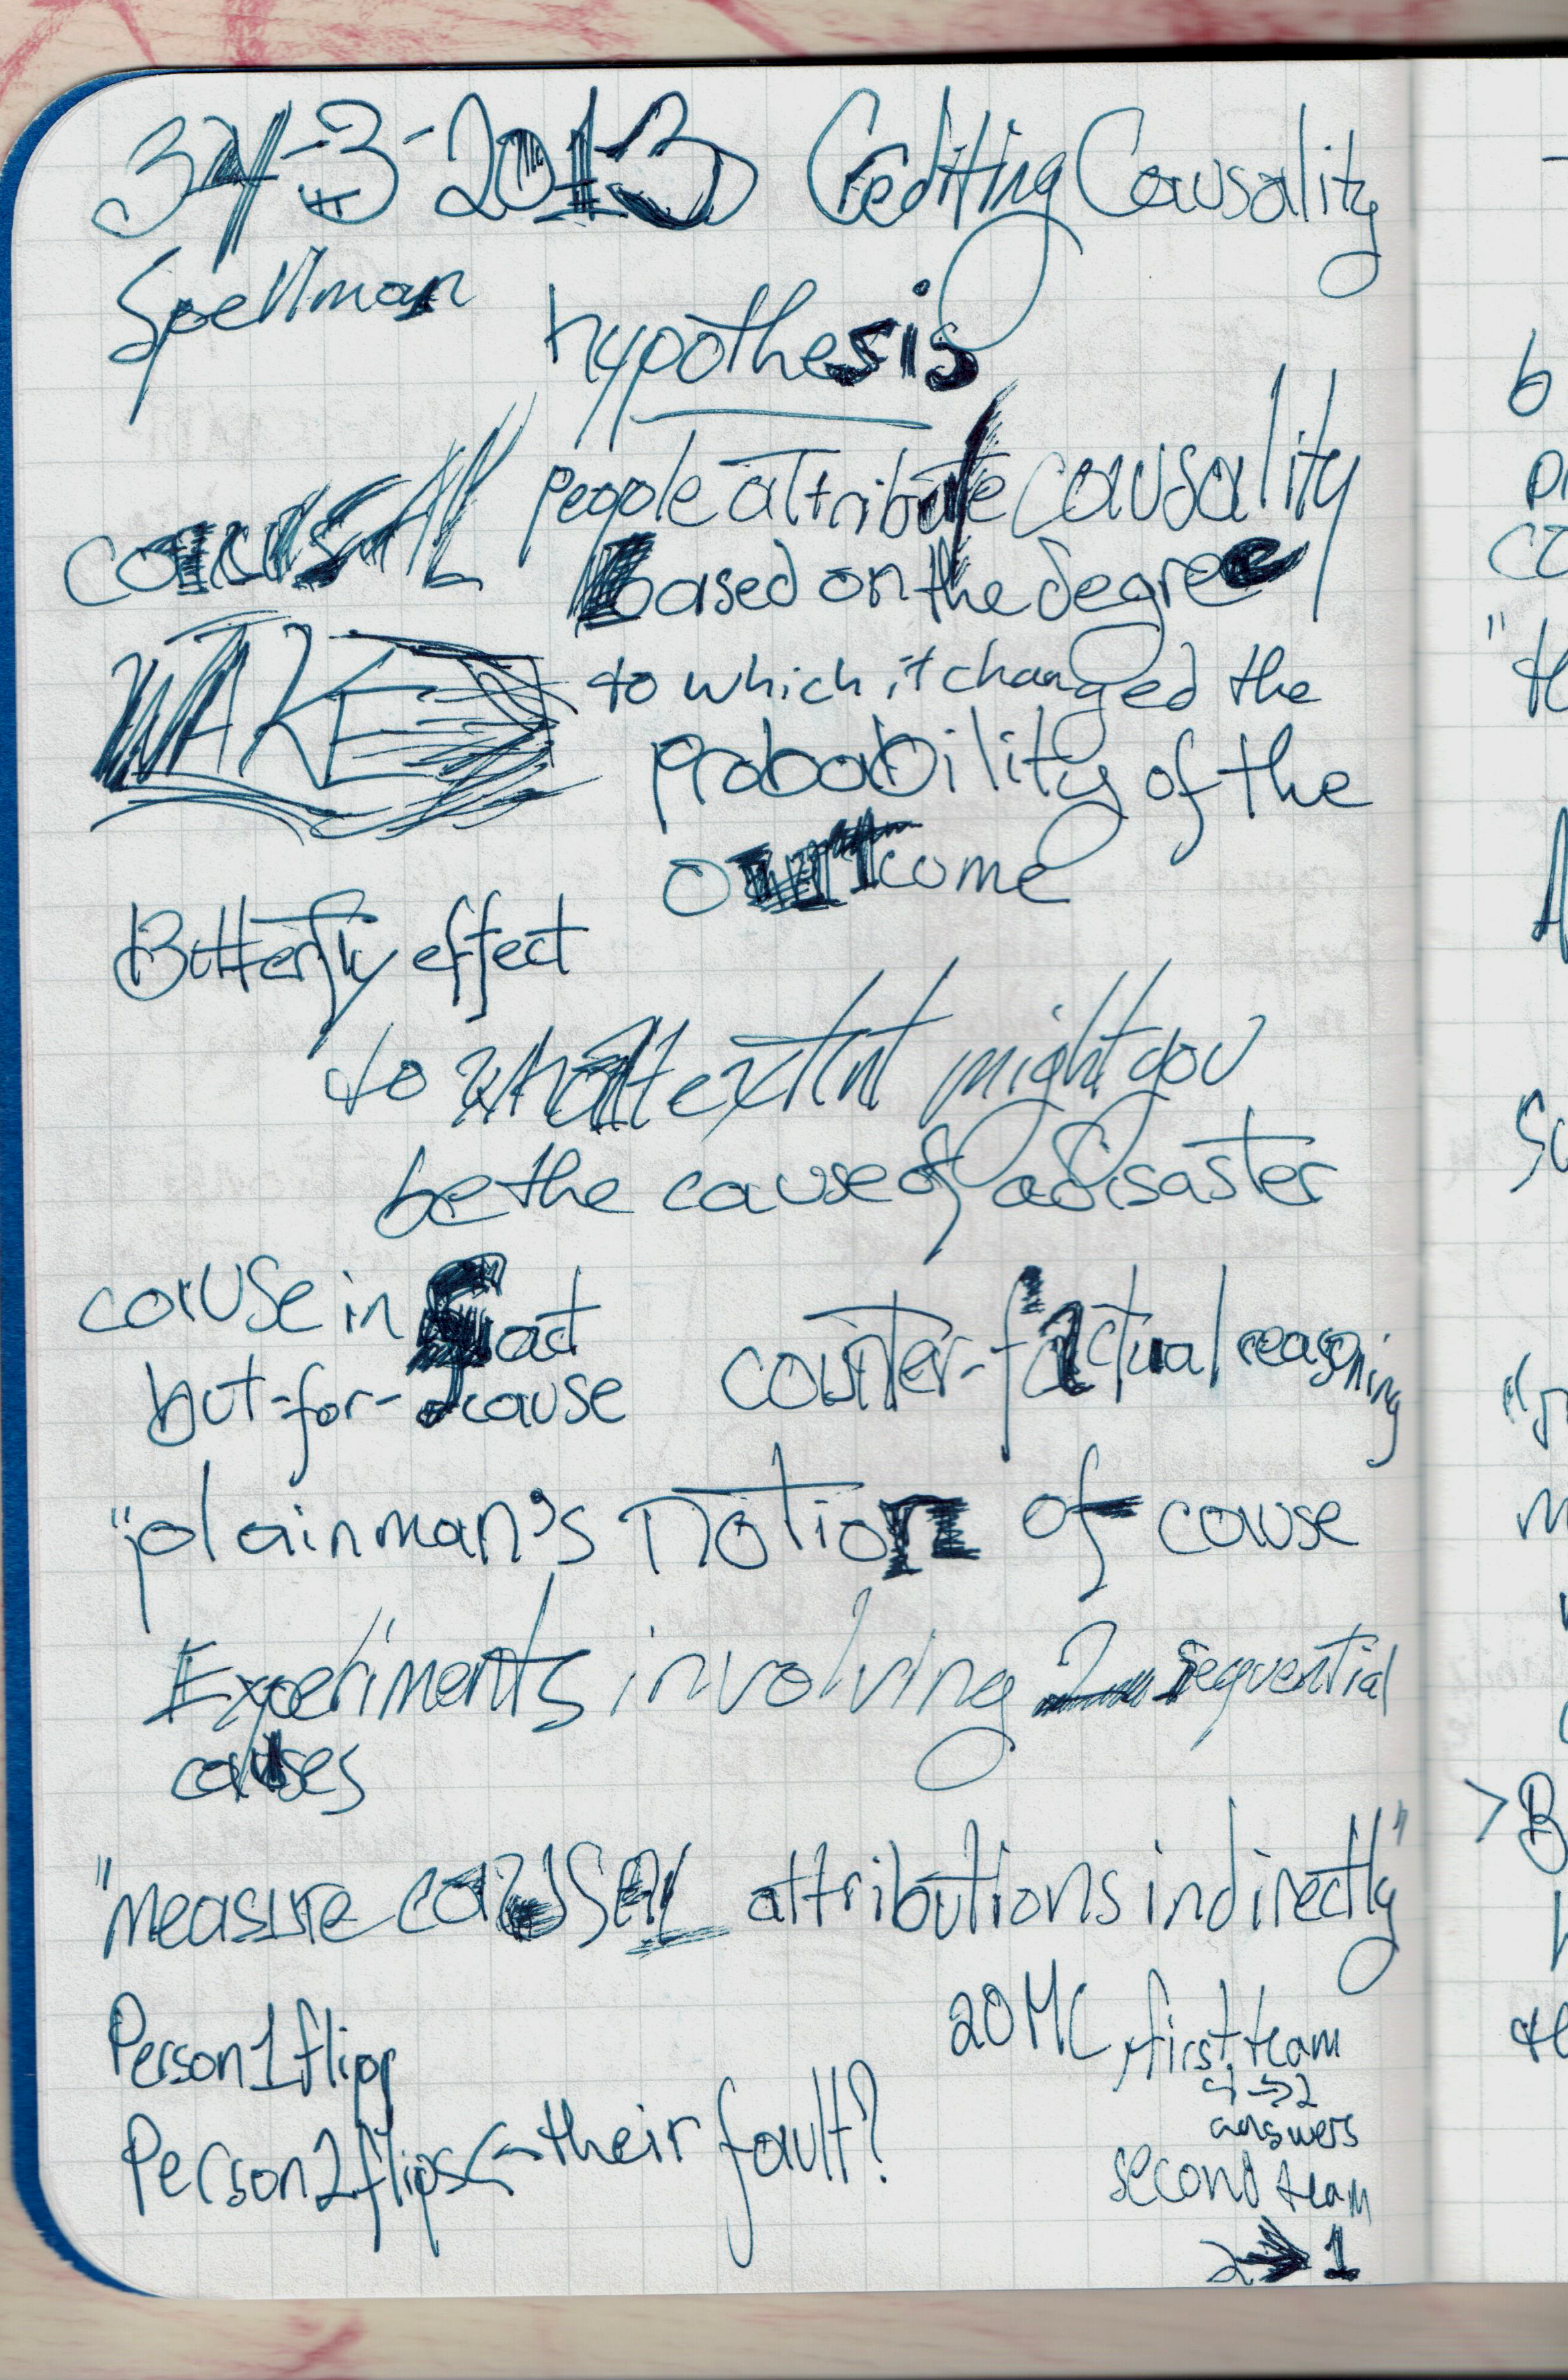 3-3-2013 Crediting Causality
Spellman
hypothesis
causAL
WAKE
people attribute causality
based on the degree
to which it changed the
probability of the
outcome
Butterfly effect
to what extent might you
be the cause of a disaster
cause in fact
but-for-cause
counter-factual reasoning
"plain man's notion of cause
Experiments involving 2 sequential
causes
"measure causal attributions indirectly"
Person 1 flips
Person 2 flips <- their fault?
20 MC, first team
4 -> 2
answers
second team
2 -> 1